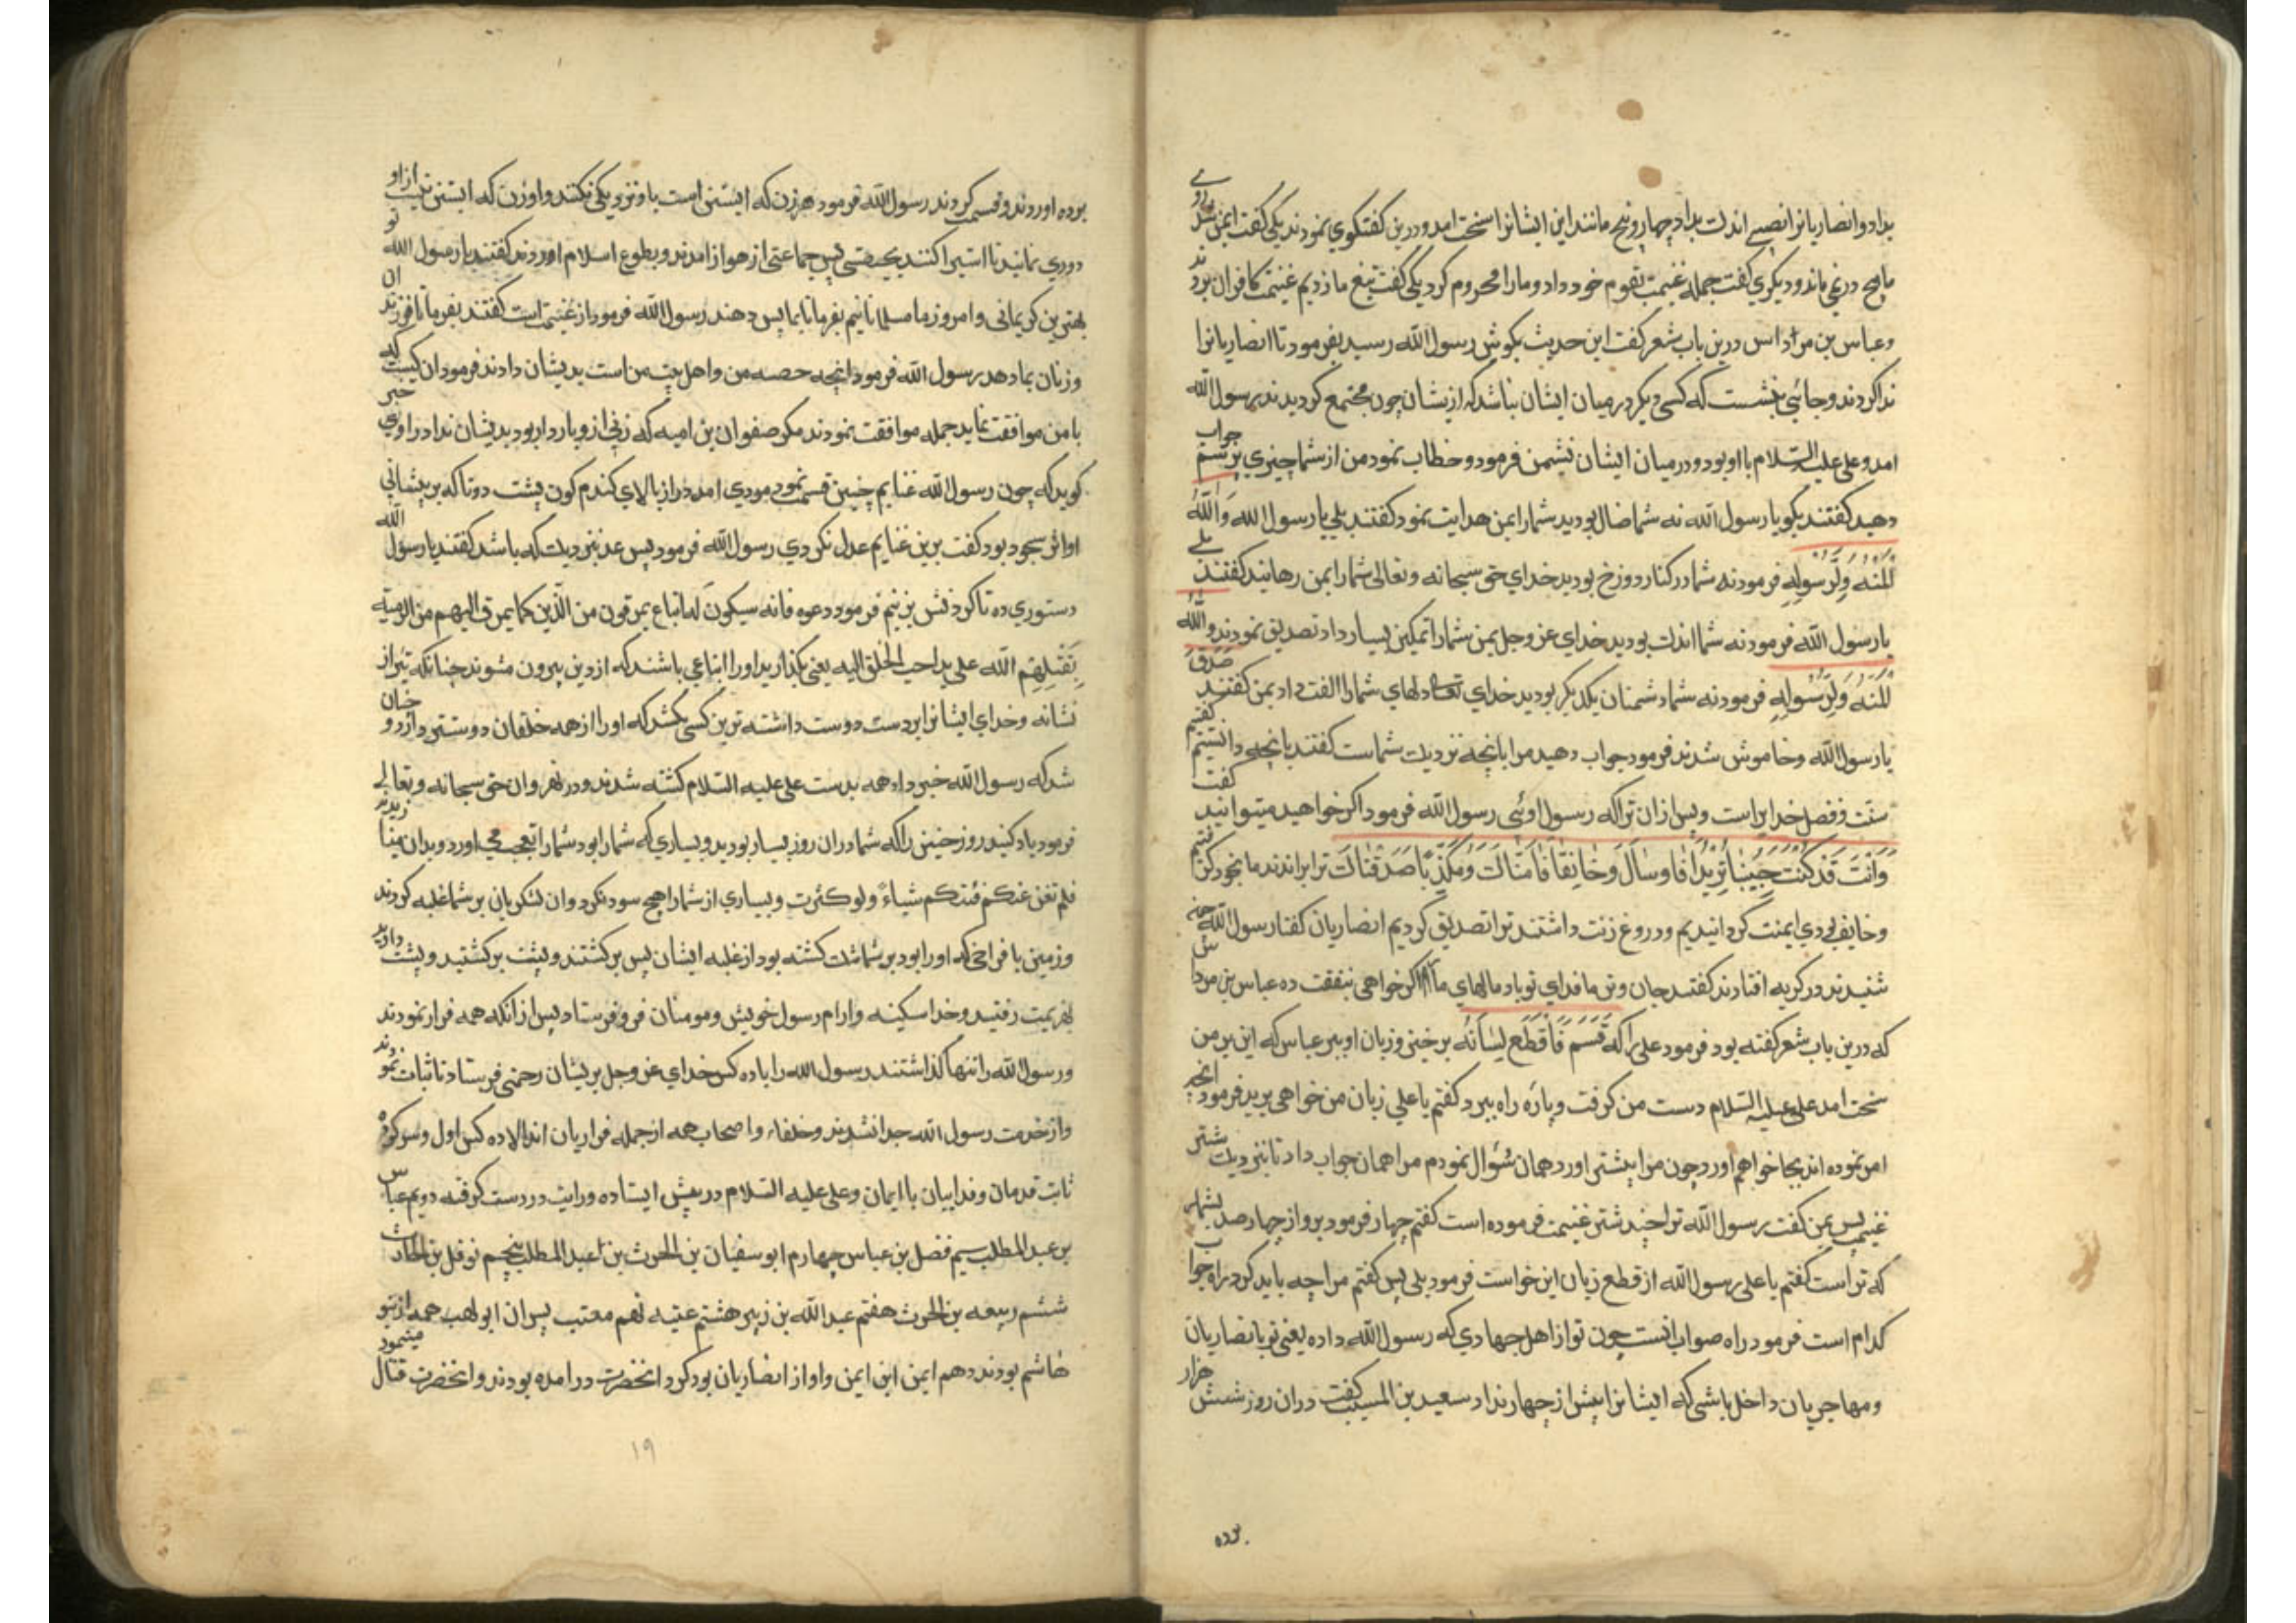 بداد و انصاریانرا نصیبی اندک بداد چهار و پنج مانند این ایشانرا سخت امد و درین کفتکوی نمودند یکی کفت ایمن شد روی
ما هیچ در نمی ماند و دیکری کفت جمله غنیمت بقوم خود داد و مارا محروم کرد یکی کفت تیغ ما زدیم غنیمت کافران بردند
و عباس بن مرداس درین باب شعر کفت این حدیث بکوش رسول الله رسید بفرمود تا انصاریانرا
ندا کردند و جائی بنشست که کسی دیکر در میان ایشان نباشد که از نشان چون مجتمع کردیدند رسول الله
امد و علی علیه السلام با او بود و در میان ایشان نشیمن فرمود و خطاب نمود من از شما چیزی پرسم جواب
دهید کفتند بکو یا رسول الله نه شما ضال بودید شما را بمن هدایت نمود کفتند بلی یا رسول الله والله
المنه ولرسوله فرمود نه شما در کنار دوزخ بودید خدای حق سبحانه و تعالی شما را بمن رهانید کفتند بلی
یا رسول الله فرمود نه شما اندک بودید خدای عز وجل بمن شما را تمکین بسیار داد تصدیق نمودند والله
المنه ولرسوله فرمود نه شما دشمنان یکدیکر بودید خدای تعالی دلهای شما را الفت داد بمن کفتند صدق
یا رسول الله و خاموش شدند فرمود جواب دهید مرا بانچه نزدیک شماست کفتند بانچه دانستیم کفتیم
منت و فضل خدایراست و پس از ان تراکه رسول اوئی رسول الله فرمود اکر خواهید میتوانید کفت
وانت قد کنت جئتنا طریدا فاویناک وخائفا فامناک ومکذبا فصدقناک ترا براندند ما بخود کرفتیم
و خایف بودی ایمنت کردانیدیم و دروغ زنت داشتند ترا تصدیق کردیم انصاریان کفتار رسول الله چون
شنیدند در کریه افتادند کفتند جان و تن ما فدای تو باد مالهای ما اکر خواهی بنفقت ده عباس بن مرداس
که درین باب شعر کفته بود فرمود علی را که قسم فاقطع لسانه برخیز و زبان او ببر عباس که این بر من
سخت امد علی علیه السلام دست من کرفت و پاره راه ببرد کفتم یا علی زبان من خواهی برید فرمود انچه
امر نموده اند بجا خواهم اورد چون مرا پیشتر اورد همان سؤال نمودم مرا همان جواب داد تا بنزدیک شتر
غنیم پس بمن کفت رسول الله ترا چند شتر غنیمت فرموده است کفتم چهار فرمود برو از چهار صد بشمار
که تراست کفتم یا علی رسول الله از قطع زبان این خواست فرمود بلی پس کفتم مرا چه باید کرد راه صواب
کدام است فرمود راه صواب انست چون تو از اهل جهادی که رسول الله داده یعنی تو بانصاریان
و مهاجریان داخل باشی که ایشانرا بیش از چهار نداد سعید بن المسیب کفت در ان روز شش هزار
برده
برده اوردند و قسمت کردند رسول الله فرمود هر زن که ابستن است با او نزدیکی نکنند و او زن که ابستن نیست از او
دوری نمایند تا استبرا کنند بحیضی پس جماعتی از هوازن امدند و بطوع اسلام اوردند کفتند یا رسول الله تو
بهترین کریمانی و امروز ما مسلمانانیم بفرما تا بما پس دهند رسول الله فرمود از غنیمت است کفتند بفرما تا فرزندان
و زنان بما دهد رسول الله فرمود انچه حصه من و اهل بیت من است بدیشان دادند فرمود ان کیست که
با من موافقت نماید جمله موافقت نمودند مکر صفوان بن امیه که زنی از و باردار بود بدیشان نداد راوی خبر
کوید که چون رسول الله غنایم چنین قسمت نمود مردی امد دراز بالای کندم کون پشت دوتا که بر پیشانی
او اثر سجود بود کفت برین غنایم عدل نکردی رسول الله فرمود پس عدل بنزدیک که باشد کفتند یا رسول الله
دستوری ده تا کردنش بزنیم فرمود دعوه فانه سیکون له اتباع یمرقون من الدین کما یمرق السهم من الرمیة
یقتلهم الله علی ید احب الخلق الیه یعنی بکذارید او را اتباعی باشند که از دین بیرون شوند چنانکه تیر از
نشانه و خدای ایشانرا بر دست دوست داشته ترین کسی بکشد که او را از همه خلقان دوستتر دارد و چنان
شد که رسول الله خبر داد همه بدست علی علیه السلام کشته شدند و در نهروان حق سبحانه و تعالی
فرمود یاد کنید روز حنین را که شما دران روز بسیار بودید و بسیاری که شما را بود شما را تعجب می اورد و بدان مینازیدید
فلم تغن عنکم فئتکم شیاء ولو کثرت و بسیاری از شما را هیچ سود نکرد و ان لشکریان بر شما غلبه کردند
و زمین با فراخی که او را بود بر شما تنک کشته بود از غلبه ایشان پس برکشتند و پشت برکشتید و پشت دادید
بهزیمت رفتید و خدا سکینه و ارام رسول خویش و مومنان فرو فرستاد پس از انکه همه فرار نمودند
و رسول الله را تنها کذاشتند رسول الله را با ده کس خدای عز وجل بریشان رحمتی فرستاد تا ثبات نمودند
و از خدمت رسول الله جدا نشدند و خلفاء و اصحاب همه از جمله فراریان اند الا ده کس اول و سرکرده
ثابت قدمان و فداییان با ایمان و علی علیه السلام در پیش ایستاده و رایت در دست کرفته دویم عباس
بن عبد المطلب سیم فضل بن عباس چهارم ابو سفیان بن الحرث بن عبد المطلب پنجم نوفل بن الحارث
ششم ربیعه بن الحرث هفتم عبد الله بن زبیر هشتم عتبه نهم معتب پسران ابو لهب همه از بنو
هاشم بودند دهم ایمن ابن ایمن و او از انصاریان بود کرد انحضرت در امده بودند و انحضرت قتال مینمود
۱۹